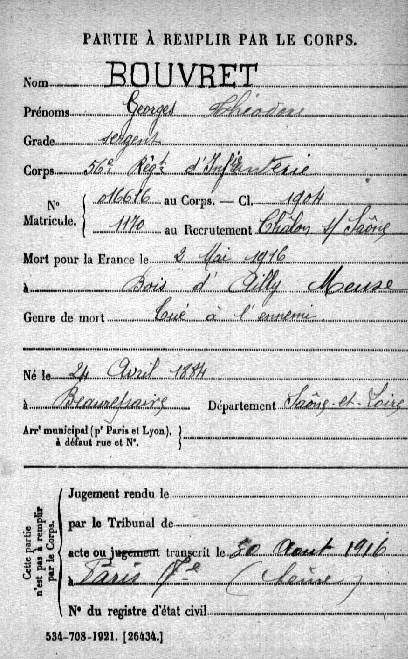 PARTIE À REMPLIR PAR LE CORPS.
Nom BOUVRET
Prénoms Georges Théodore
Grade sergent
Corps 56e Régt d'Infanterie
N° Matricule. 016616 au Corps. — Cl. 1904
1170 au Recrutement Châlon s/ Saône
Mort pour la France le 2 Mai 1916
à Bois d'Ailly Meuse
Genre de mort Tué à l'ennemi
Né le 24 Avril 1884
à Beaurepaire Département Saône-et-Loire
Arrt municipal (pr Paris et Lyon), à défaut rue et N°.
Cette partie n'est pas à remplir par le Corps.
Jugement rendu le
par le Tribunal de
acte ou jugement transcrit le 30 Août 1916
à Paris (Seine)
N° du registre d'état civil
534-708-1921. [26434.]